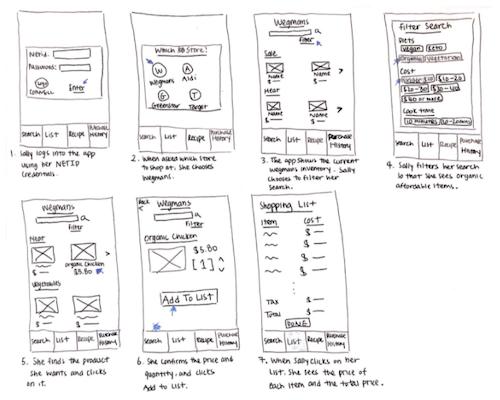 NetId:
Password:
Cornell
Enter
Search List Recipe Purchase History
1. Sally logs into the app
using her NETID
credentials.
Which Store?
W A
Wegmans Aldi
G T
Greenstar Target
Search List Recipe Purchase History
2. When asked which store
to shop at. She chooses
Wegmans.
Wegmans
Filter
Sale
Name Name
Meat
Name Name
Search List Recipe Purchase History
3. The app shows the current
wegmans inventory. Sally
chooses to filter her
search.
Filter Search
Diets
Vegan Keto
Organic Vegetarian
Cost
$10-20
$20-30 $30-40
$40 or more
Cook time
10 minutes 10-20mins
Search List Recipe Purchase History
4. Sally filters her search
so that she sees organic
affordable items.
Wegmans
Filter
Meat
Organic Chicken
$ — $5.80
Vegetables
$ — $ —
Search List Recipe Purchase History
5. She finds the product
she wants and clicks
on it.
Back
Wegmans
Filter
Organic Chicken
$5.80
[1]
Add To List
Search List Recipe Purchase History
6. She confirms the price and
quantity, and clicks
Add to List.
Shopping List
Item Cost
$ —
$ —
$ —
$ —
Tax $ —
Total $ —
DONE
Search List Recipe Purchase History
7. When Sally clicks on her
list. She sees the price of
each item and the total price.